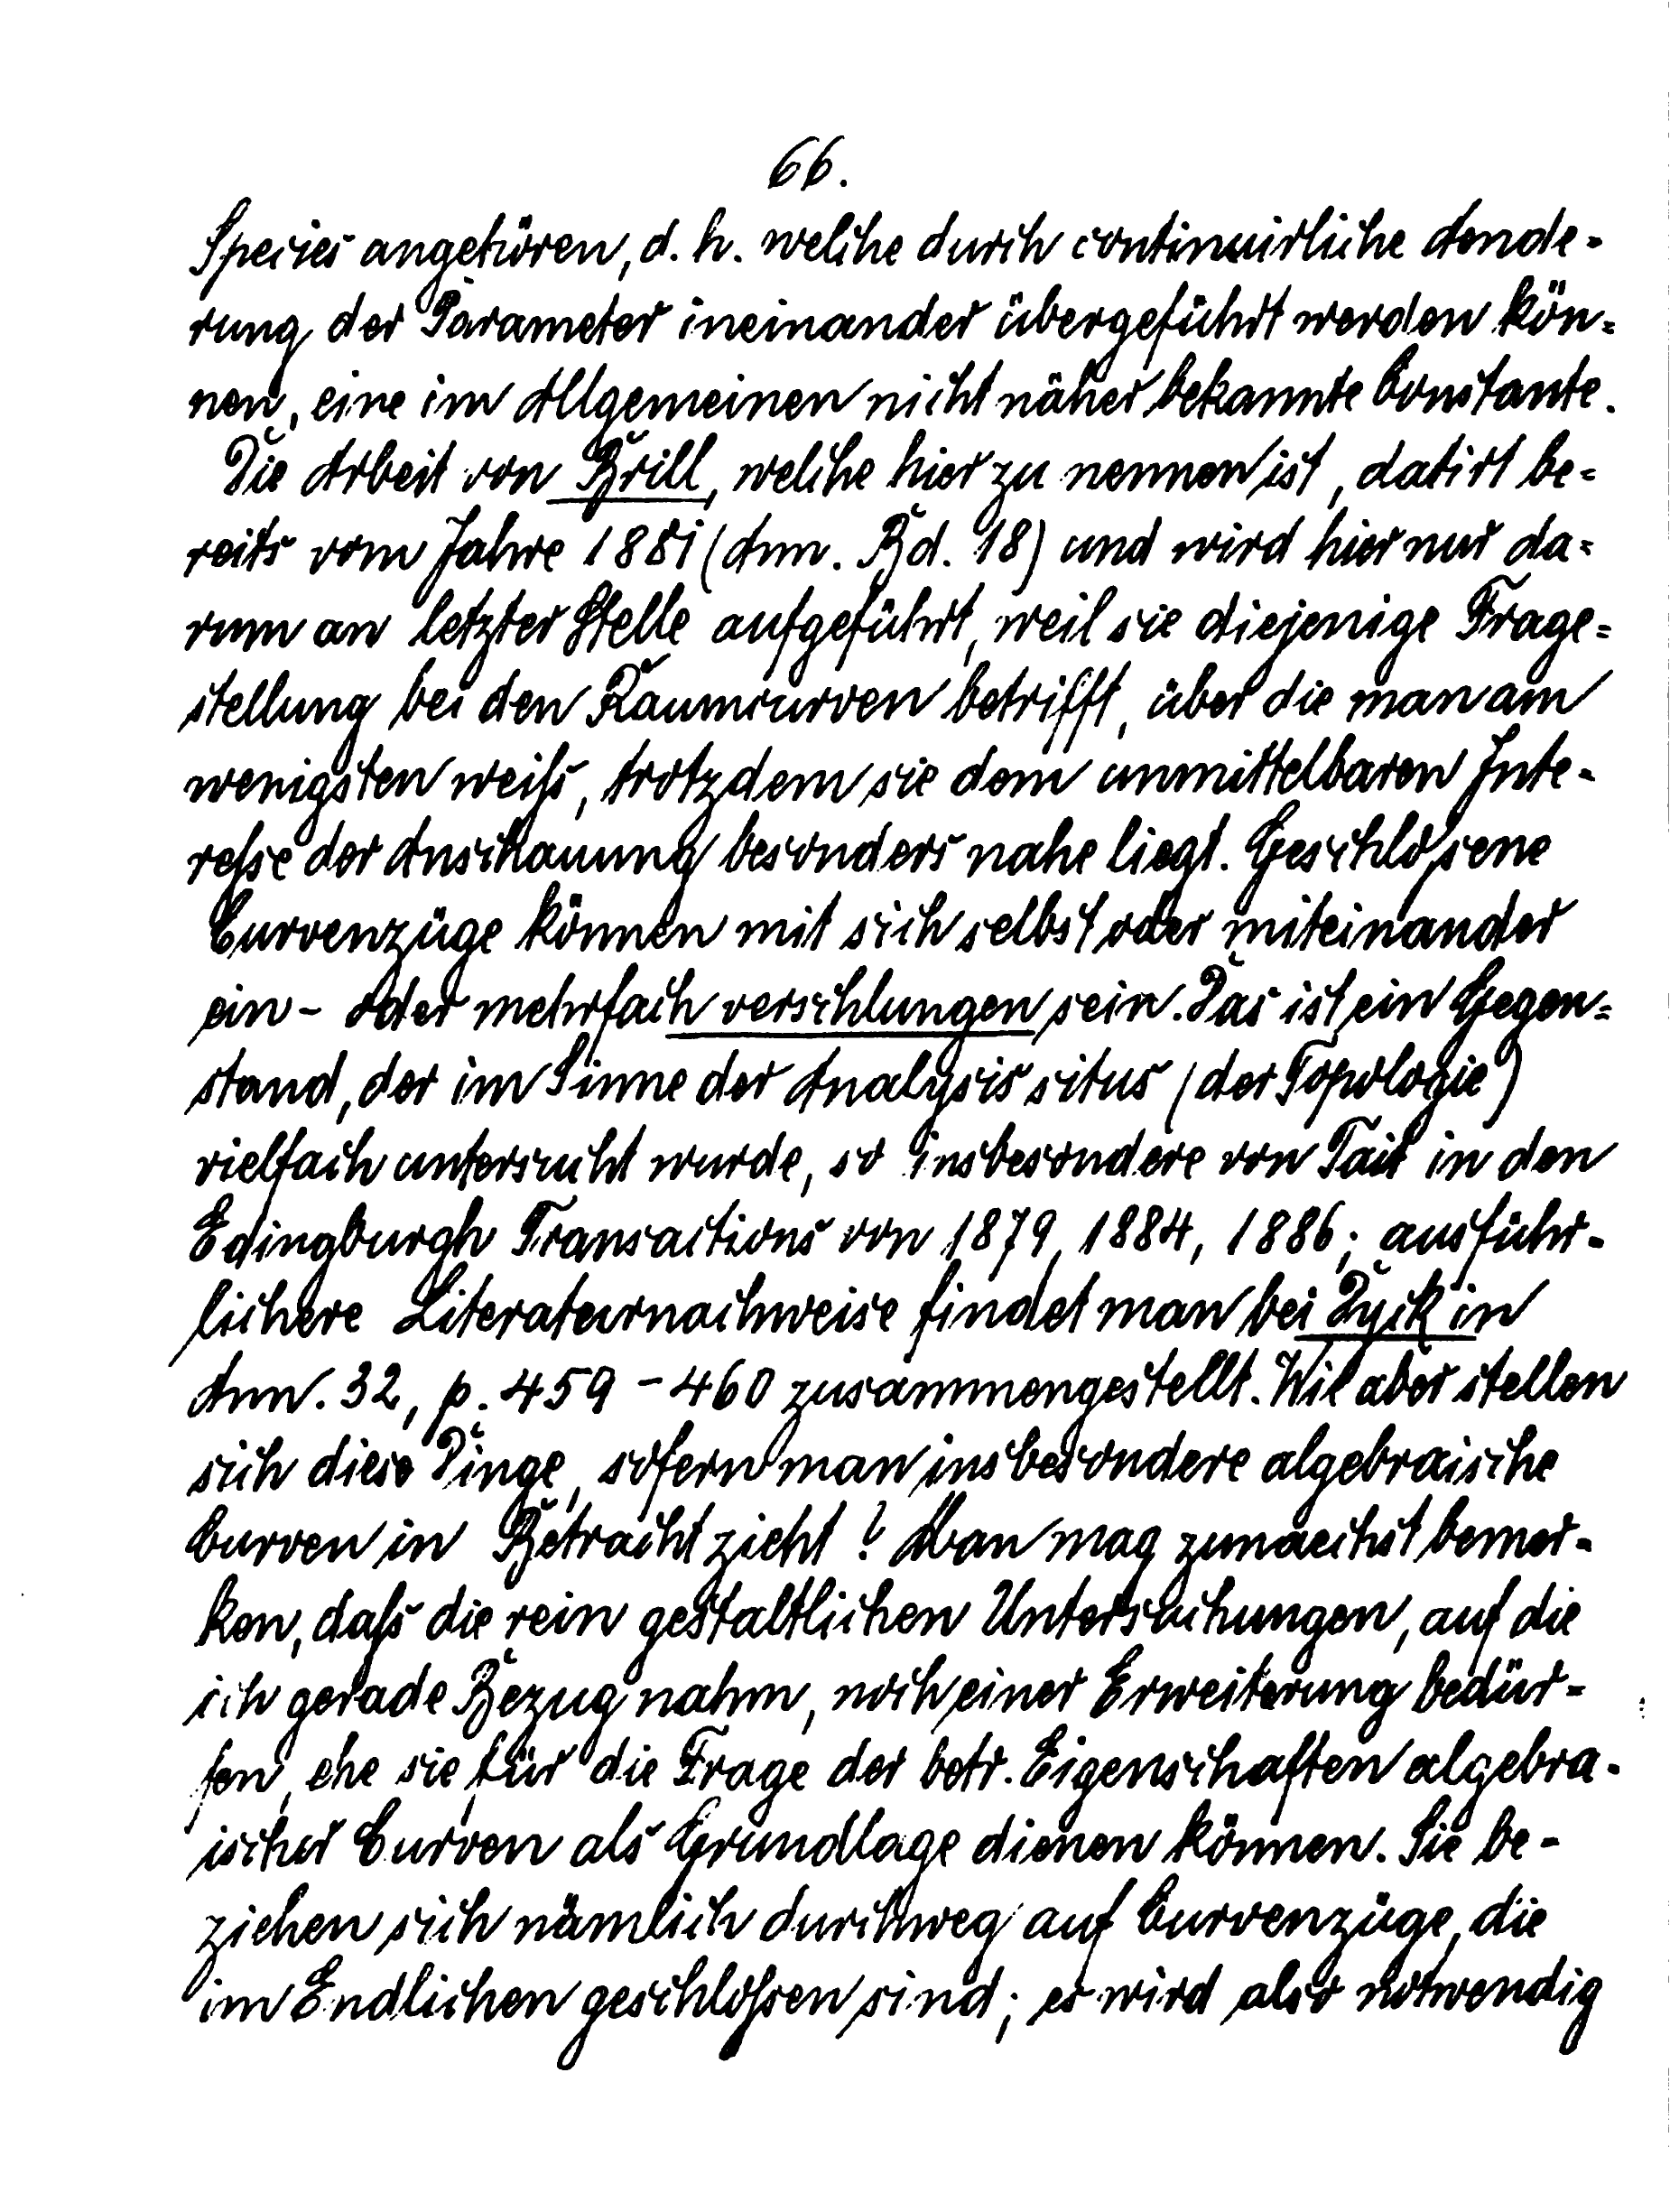 66.
Species angehören, d. h. welche durch continuirliche Aende-
rung der Parameter ineinander übergeführt werden kön-
nen, eine im Allgemeinen nicht näher bekannte Constante.
Die Arbeit von Brill, welche hier zu nennen ist, datirt be-
reits vom Jahre 1881 (Ann. Bd. 18) und wird hier nur da-
rum an letzter Stelle aufgeführt, weil sie diejenige Frage-
stellung bei den Raumcurven betrifft, über die man am
wenigsten weiß, trotzdem sie dem unmittelbaren Inte-
reße der Anschauung besonders nahe liegt. Geschloßene
Curvenzüge können mit sich selbst oder miteinander
ein- oder mehrfach verschlungen sein. Das ist ein Gegen-
stand, der im Sinne der Analysis situs (der Topologie)
vielfach untersucht wurde, so insbesondere von Tait in den
Edingburgh Transactions von 1879, 1884, 1886; ausführ-
lichere Literaturnachweise findet man bei Dyck in
Ann. 32, p. 459 - 460 zusammengestellt. Wie aber stellen
sich diese Dinge, sofern man insbesondere algebraische
Curven in Betracht zieht? Man mag zunaechst bemer-
ken, daß die rein gestaltlichen Untersuchungen, auf die
ich gerade Bezug nahm, noch einer Erweiterung bedür-
fen, ehe sie für die Frage der betr. Eigenschaften algebra-
ischer Curven als Grundlage dienen können. Sie be-
ziehen sich nämlich durchweg auf Curvenzüge, die
im Endlichen geschloßen sind; es wird also notwendig